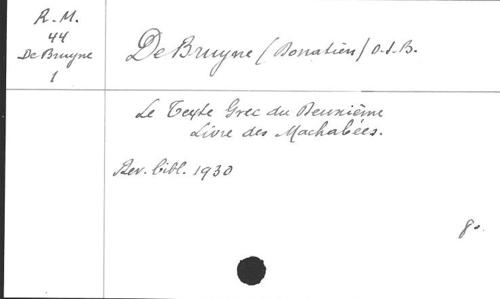 R. M.
44
De Bruyne
1
De Bruyne (Donatien) O.S.B.
Le Texte Grec du Deuxième
Livre des Machabées.
Rev. bibl. 1930
8o.